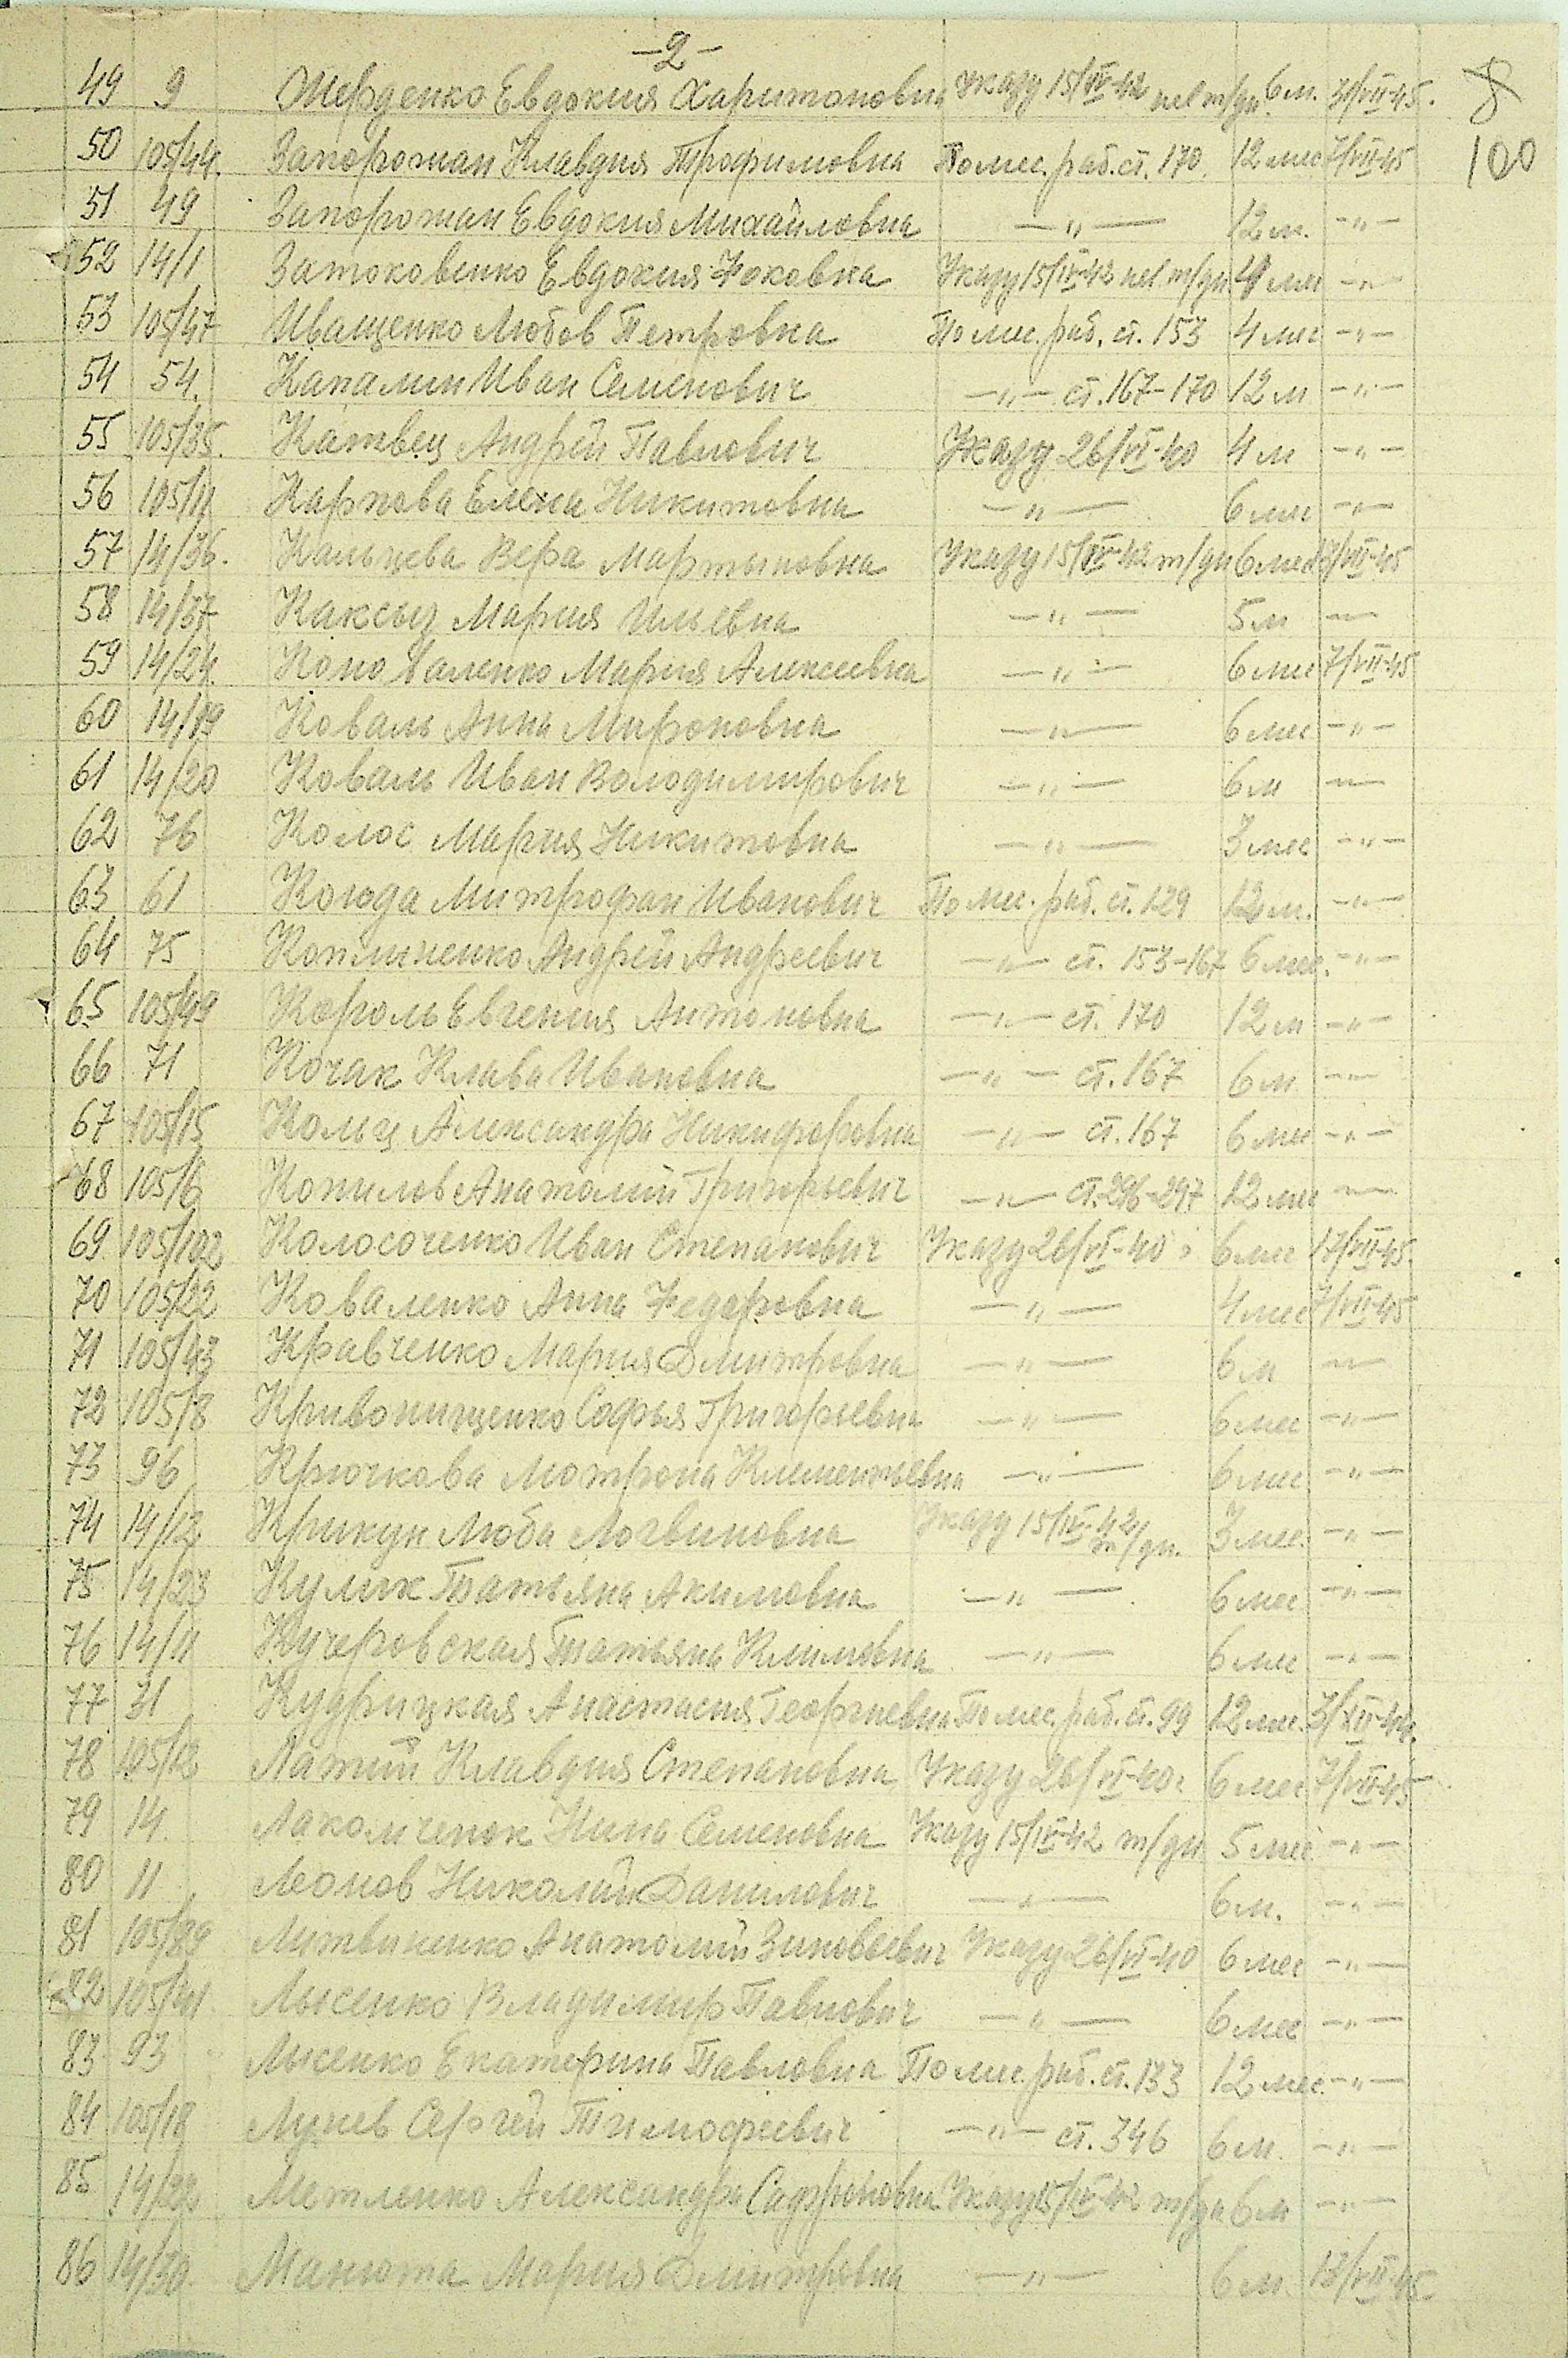 -2-
8
100
49 9 Жерденко Евдокия Харитоновна Указу 15/IV-42 невт/дн. 6 м. 7/VII-45.
50 105/44. Запорожан Клавдия Трофимовна По мес. раб. ст. 170. 12 мес 7/VII-45
51 49 Запорожан Евдокия Михайловна —„— 12 м. —„—
52 14/1 Затоковенко Евдокия Фоковна Указу 15/IV-42 нев. т/дн 4 мес —„—
53 105/47 Иващенко Любов Петровна По мес. раб. ст. 153 4 мес —„—
54 54. Капалин Иван Семенович —„— ст. 167-170 12 м —„—
55 105/35. Катвец Андрей Павлович Указу 26/VI-40 4 м —„—
56 105/11 Карпова Елена Никитовна —„— 6 мес —„—
57 14/36. Кальцева Вера Мартыновна Указу 15/IV-42 т/дн 6 мес 13/VII-45
58 14/37 Каксыз Мария Ильевна —„— 5 м —„—
59 14/24. Коноваленко Мария Алексеевна —„— 6 мес 7/VII-45
60 14/19 Коваль Анна Мироновна —„— 6 мес —„—
61 14/20 Коваль Иван Володимирович —„— 6 м —„—
62 76 Колос Мария Никитовна —„— 3 мес —„—
63 61 Коюда Митрофан Иванович По мес. раб. ст. 129 12 м. —„—
64 75 Копличенко Андрей Андреевич —„— ст. 153-167 6 мес. —„—
65 105/49 Король Евгения Антоновна —„— ст. 170 12 м —„—
66 71 Кочак Клава Ивановна —„— ст. 167 6 м —„—
67 105/15 Кольц Александра Никифоровна —„— ст. 167 6 мес —„—
68 105/6 Копилов Анатолий Григорьевич —„— ст. 296-297 12 мес —„—
69. 105/102 Колосоченко Иван Степанович Указу 26/VI-40 г 6 мес 17/VII-45.
70 105/22 Коваленко Анна Федоровна —„— 4 мес 7/VII-45
71 105/43 Кравченко Мария Дмитровна —„— 6 м —„—
72 105/8 Кривонищенко Софья Григорьевна —„— 6 мес —„—
73 96 Крючкова Мотрона Клементьевна —„— 6 мес —„—
74 14/12 Крикун Люба Логвиновна Указу 15/IV-42 т/дн. 3 мес. —„—
75 14/23 Кулик Татьяна Акимовна —„— 6 мес —„—
76 14/11 Кучеровская Татьяна Климовна —„— 6 мес —„—
77 31 Кудрицкая Анастасия Георгиевна По мес. раб. ст. 99 12 мес. 7/XII-44.
78 105/12 Латий Клавдия Степановна Указу 26/VI-40 г 6 мес 7/VII-45
79 14. Лакомченок Нина Семеновна Указу 15/IV-42 т/дн 5 мес —„—
80 11 Леонов Николай Данилович —„— 6 м. —„—
81 105/89 Литвиненко Анатолий Зиновьевич Указу 26/VI-40 6 мес —„—
82 105/41. Лысенко Владимир Павлович —„— 6 мес —„—
83 93 Лысенко Екатерина Павловна По мес. раб. ст. 133 12 мес. —„—
84 105/18 Лунев Сергей Тимофеевич —„— ст. 346 6 м. —„—
85 14/22 Метленко Александра Сафроновна Указу 15/IV-42 т/дн 6 м —„—
86 14/30. Манюта Мария Дмитровна —„— 6 м. 13/VII-45